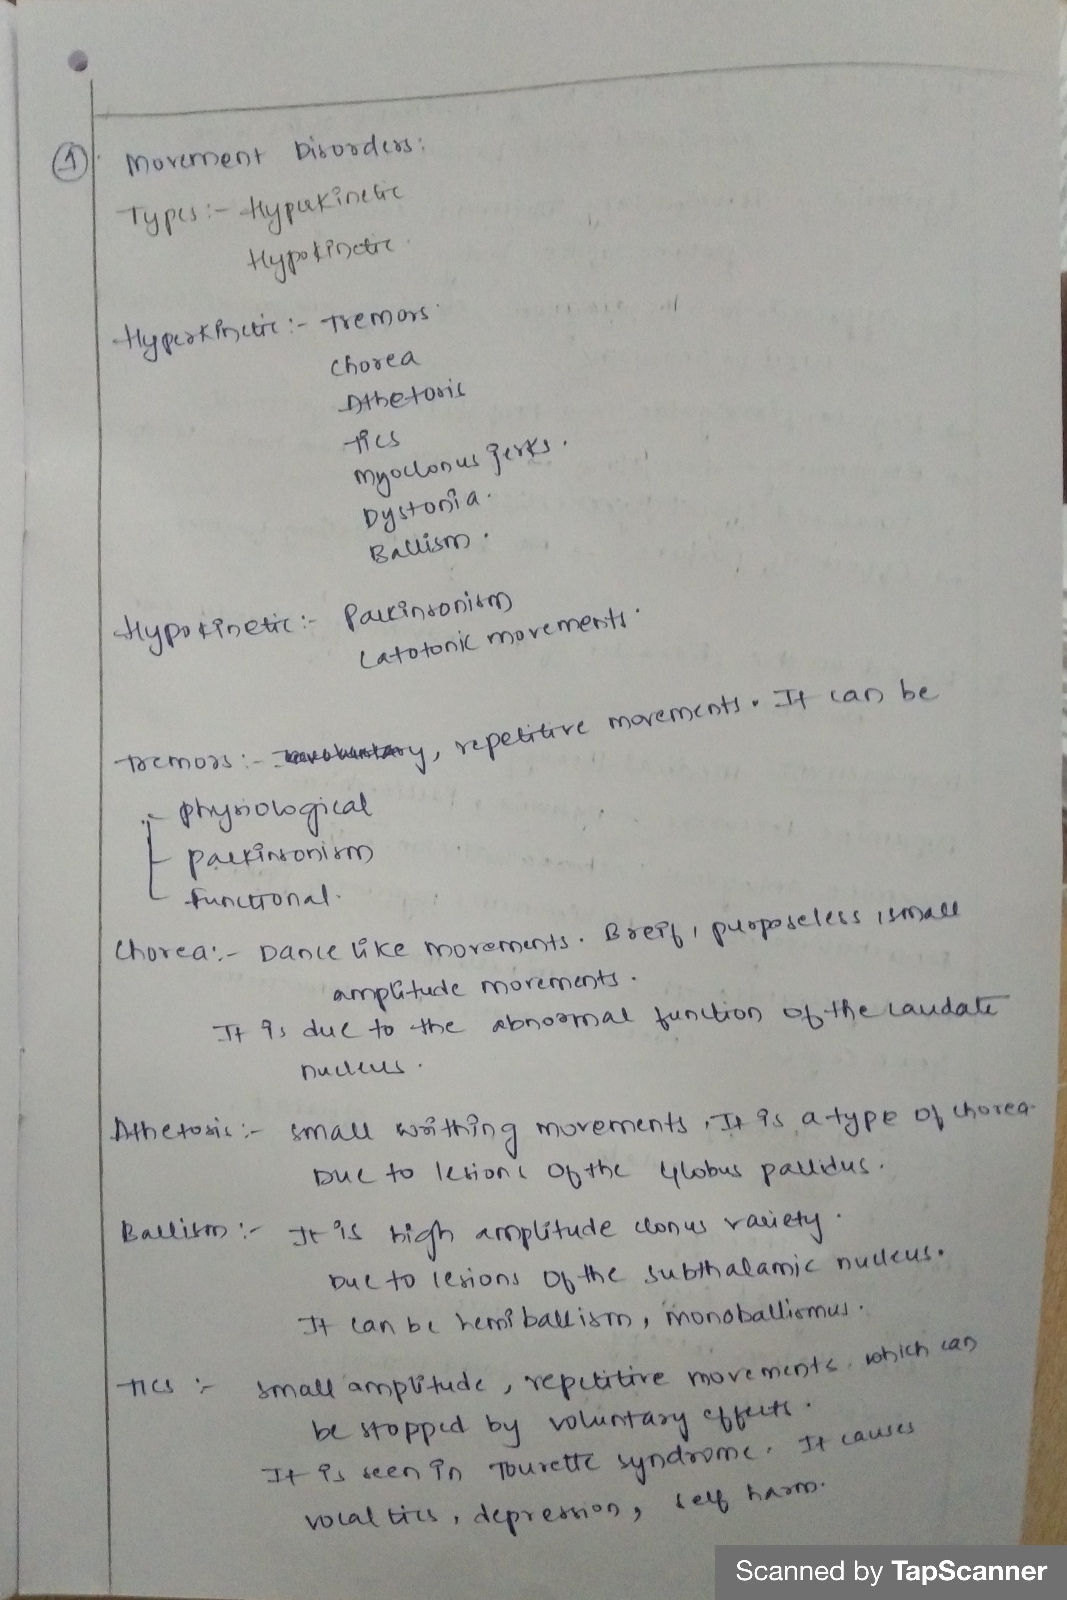 1 Movement Disorders:
Types:- Hyperkinetic
Hypokinetic.
Hyperkinetic:- Tremors
chorea
Athetosis
Tics
Myoclonus jerks.
Dystonia.
Ballism.
Hypokinetic:- Parkinsonism
Catotonic movements.
Tremors:- , repetitive movements. It can be
physiological
parkinsonism
functional.
Chorea:- Dance like movements. Breif, purposeless, small
amplitude movements.
It is due to the abnormal function of the caudate
nucleus.
Athetosis:- small writhing movements, It is a type of chorea.
Due to lesions of the Globus pallidus.
Ballism:- It is high amplitude clonus variety.
Due to lesions of the subthalamic nucleus.
It can be hemiballism, monoballismus.
Tics:- small amplitude, repetitive movements which can
be stopped by voluntary effects.
It is seen in Tourette syndrome. It causes
vocal tics, depression, self harm.
Scanned by TapScanner